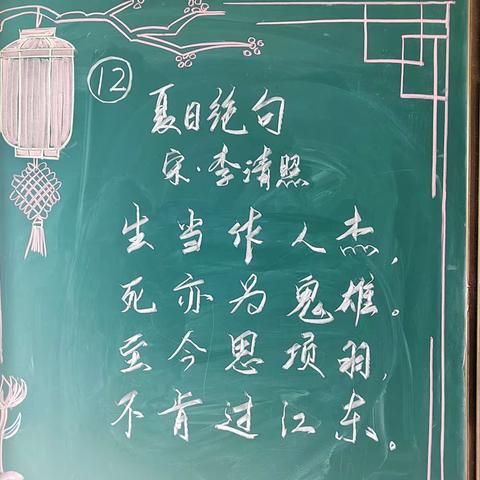 12
夏日绝句
宋·李清照
生当作人杰,
死亦为鬼雄。
至今思项羽,
不肯过江东。